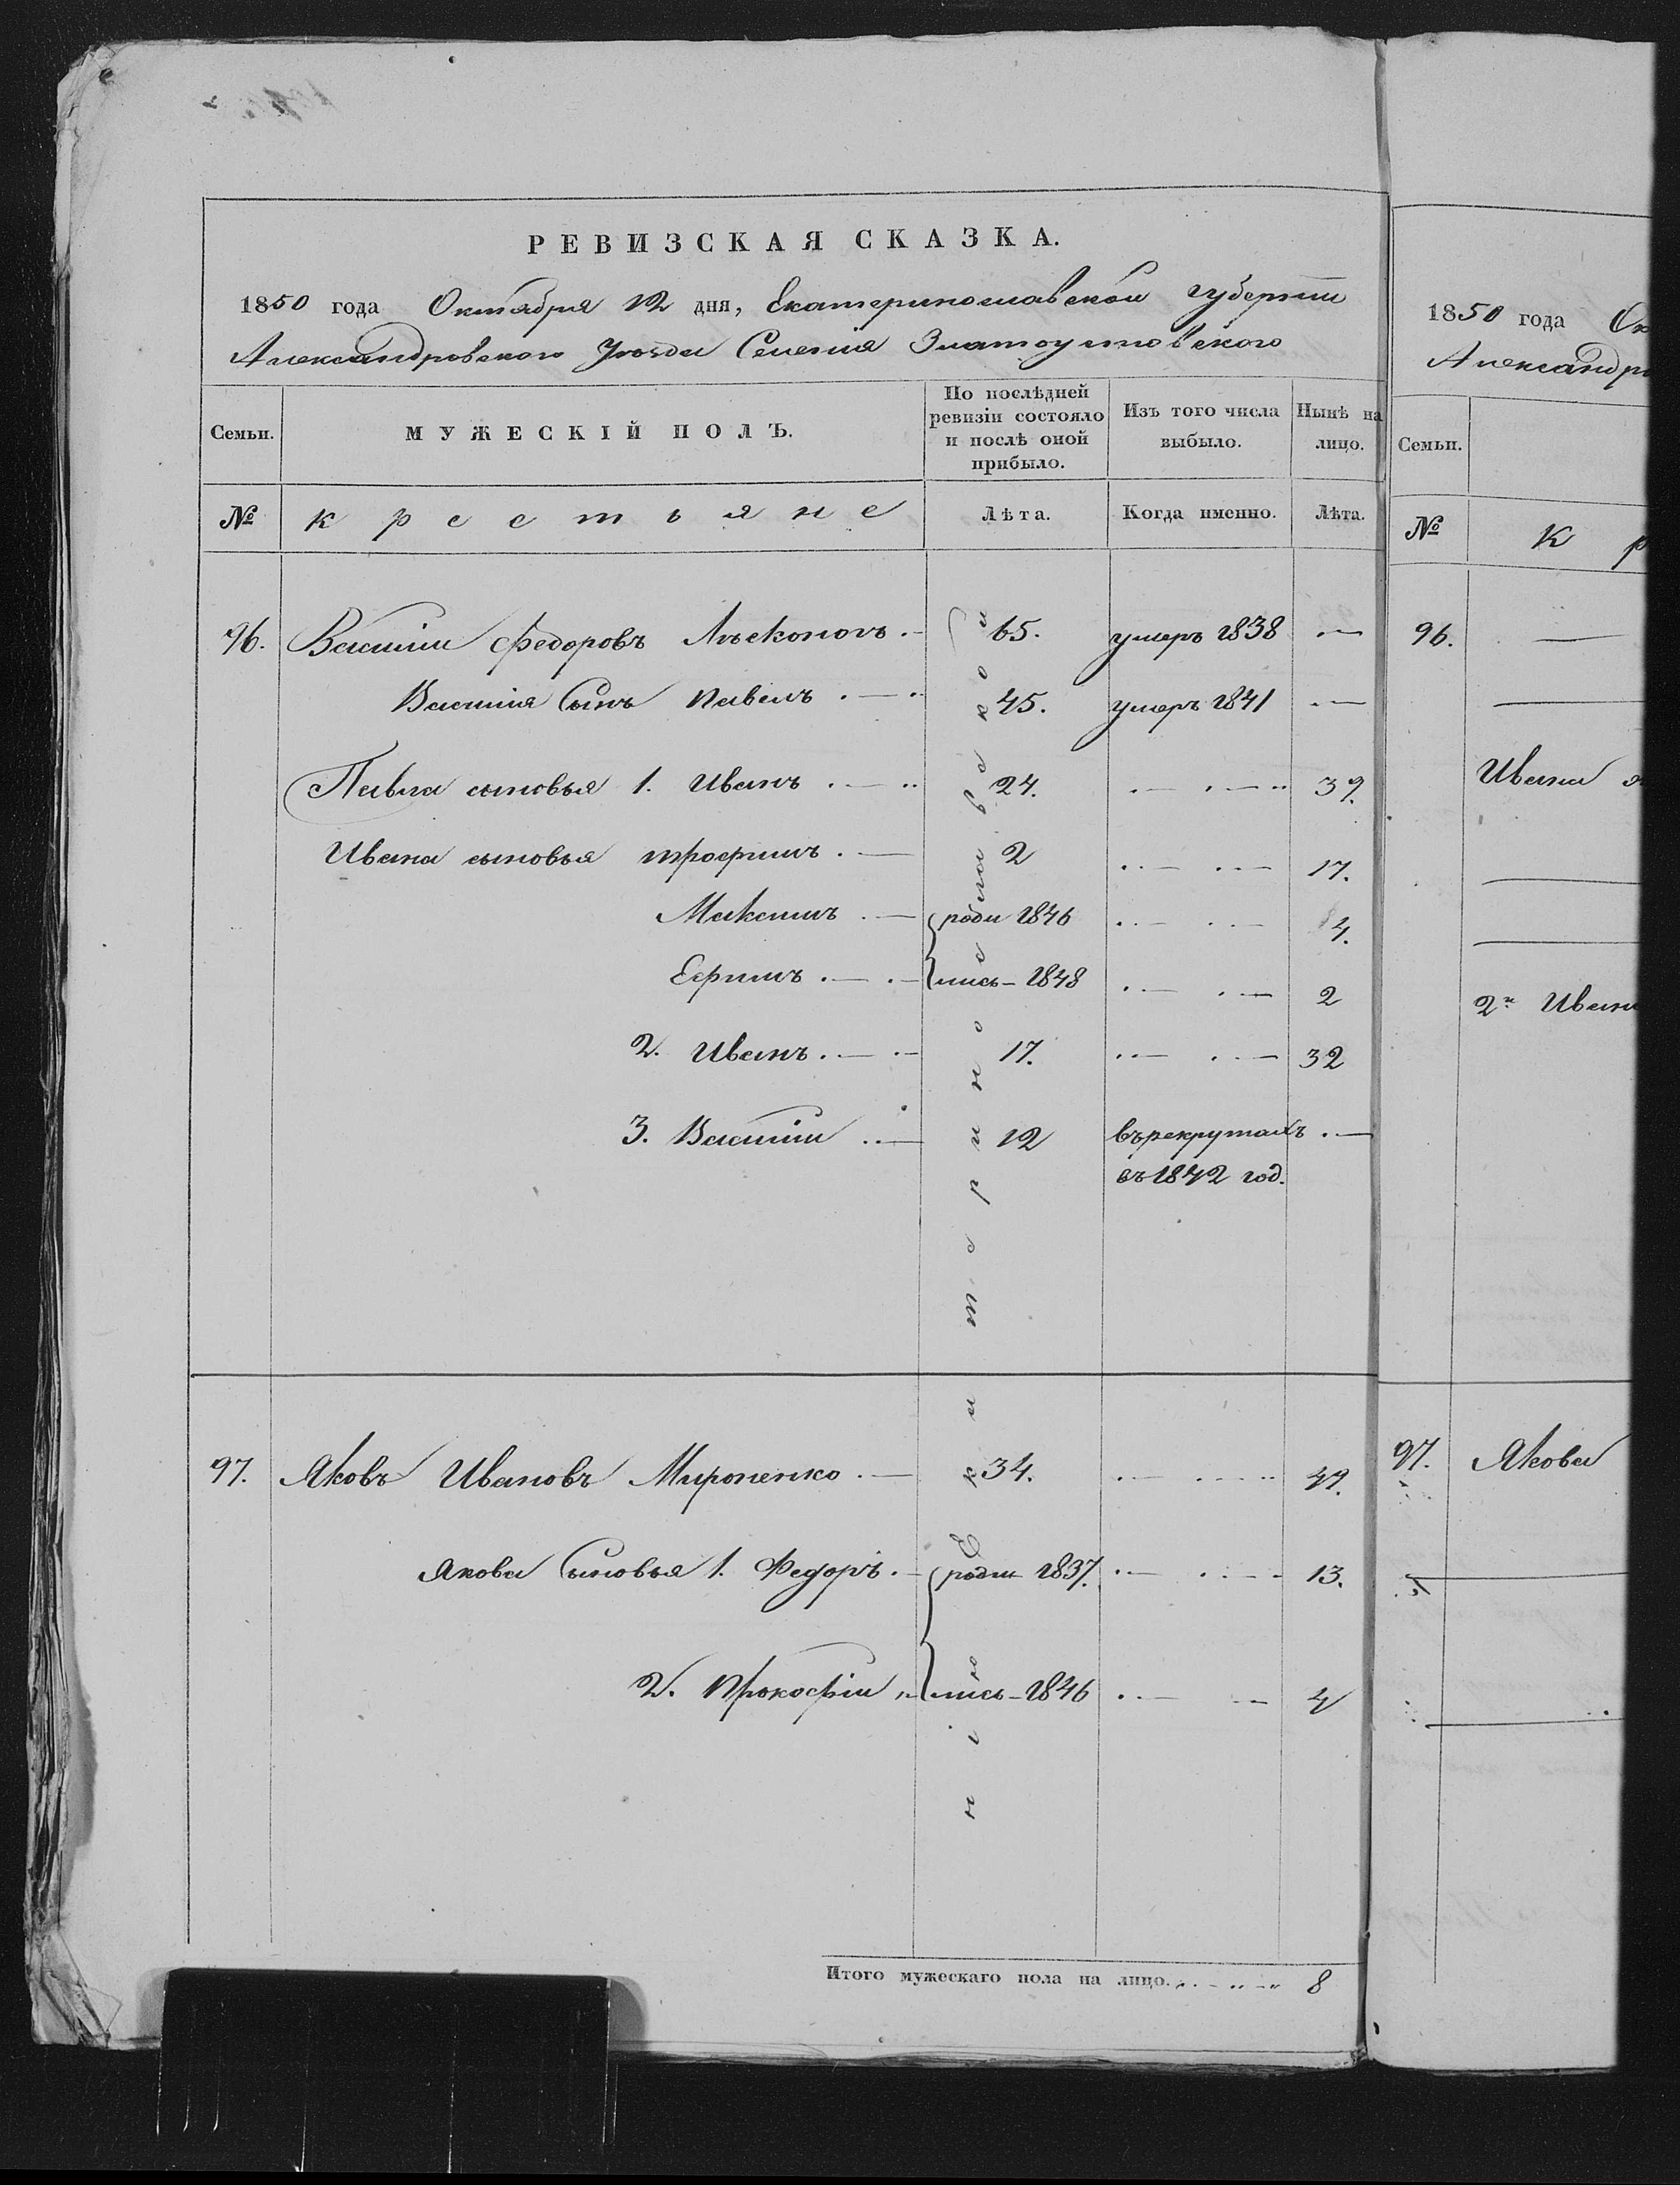 РЕВИЗСКАЯ СКАЗКА.
1850 года Октября 12 дня, Екатеринославской губернии
Александровского Уезда Селения Златоустовского
Семьи. МУЖЕСКІЙ ПОЛЪ. По послѣдней ревизіи состояло и послѣ оной прибыло. Изъ того числа выбыло. Нынѣ на лицо.
№ крестьяне Лѣта. Когда именно. Лѣта.
96. Василии Федоровъ 65. умеръ 1838 —
Василия Сынъ Павелъ 45. умеръ 1841 —
Павла сыновья 1. Иванъ 24. 39.
Ивана сыновья трофимъ 2 17.
Максимъ роди 1846 4.
Ефимъ лись - 1848 2
2. Иванъ 17. 32
3. Василии 12 въ рекрутахъ —
въ 1842 год.
97. Яковъ Ивановъ Мироненко 34. 49.
Якова Сыновья 1. Федоръ роди 1837. 13.
2. Прокофіи лись - 1846 4
Итого мужескаго пола на лицо. 8
1850 года Ок
Александро
Семьи.
№ К р
96. —
Ивана
2й Иван
97. Якова